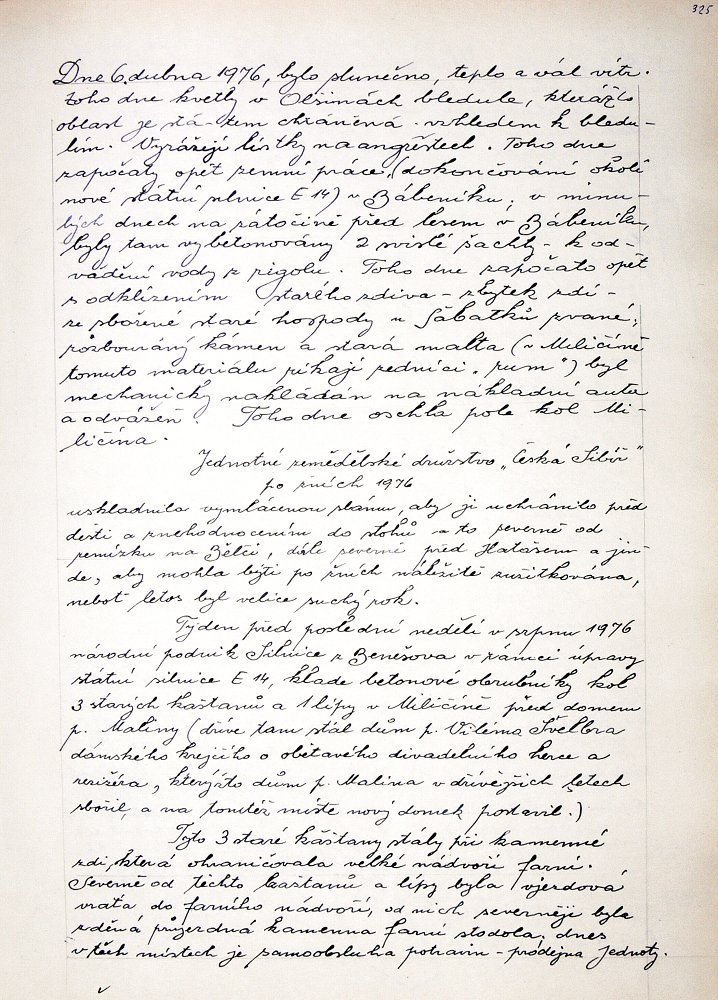 325
Dne 6. dubna 1976, bylo slunečno, teplo a vál vítr.
Toho dne kvetly v Olšinách bledule, kterážto
oblast je stá-tem chráněná vzhledem k bledu-
lím. Vyrážejí lístky na angreštech. Toho dne
započaty opět zemní práce, (dokončování okolí
nové státní silnice E 14) v Bábeníku, v minu-
lých dnech na zátočině před lesem v Bábeníku,
byly tam vybetonovány 2 svislé šachty - k od-
vádění vody z rigolu. Toho dne započato opět
s odklízením starého zdiva - zbytek zdí -
ze zbořené staré hospody u Sabatků zvané,
rozbouraný kámen a stará malta (v Miličíně
tomuto materiálu říkají zedníci „rum“) byl
mechanicky nakládán na nákladní auta
a odvážen. Toho dne oschla pole kol Mi-
ličína.
Jednotné zemědělské družstvo „Česká Sibiř“
po žních 1976
uskladnilo vymlácenou slámu, aby ji uchránilo před
dešti a znehodnocením do stohů a to severně od
remízku na Bělči, dále severně před Hatášem a jin-
de, aby mohla býti po žních náležitě zužitkována,
neboť letos byl velice suchý rok.
Týden před poslední nedělí v srpnu 1976
národní podnik Silnice z Benešova v rámci úpravy
státní silnice E 14, klade betonové obrubníky kol
3 starých kaštanů a 1 lípy v Miličíně před domem
p. Maliny (dříve tam stál dům p. Viléma Švelbra
dámského krejčího o obětavého divadelního herce a
režiséra, kterýžto dům p. Malina v dřívějších letech
sbořil, a na tomtéž místě nový domek postavil.)
Tyto 3 staré kaštany stály při kamenné
zdi, která ohraničovala velké nádvoří farní.
Severně od těchto kaštanů a lípy byla vjezdová
vrata do farního nádvoří, od nich severněji byla
zděná průjezdná kamenná farní stodola, dnes
v těch místech je samoobsluha potravin - prodejna Jednoty.